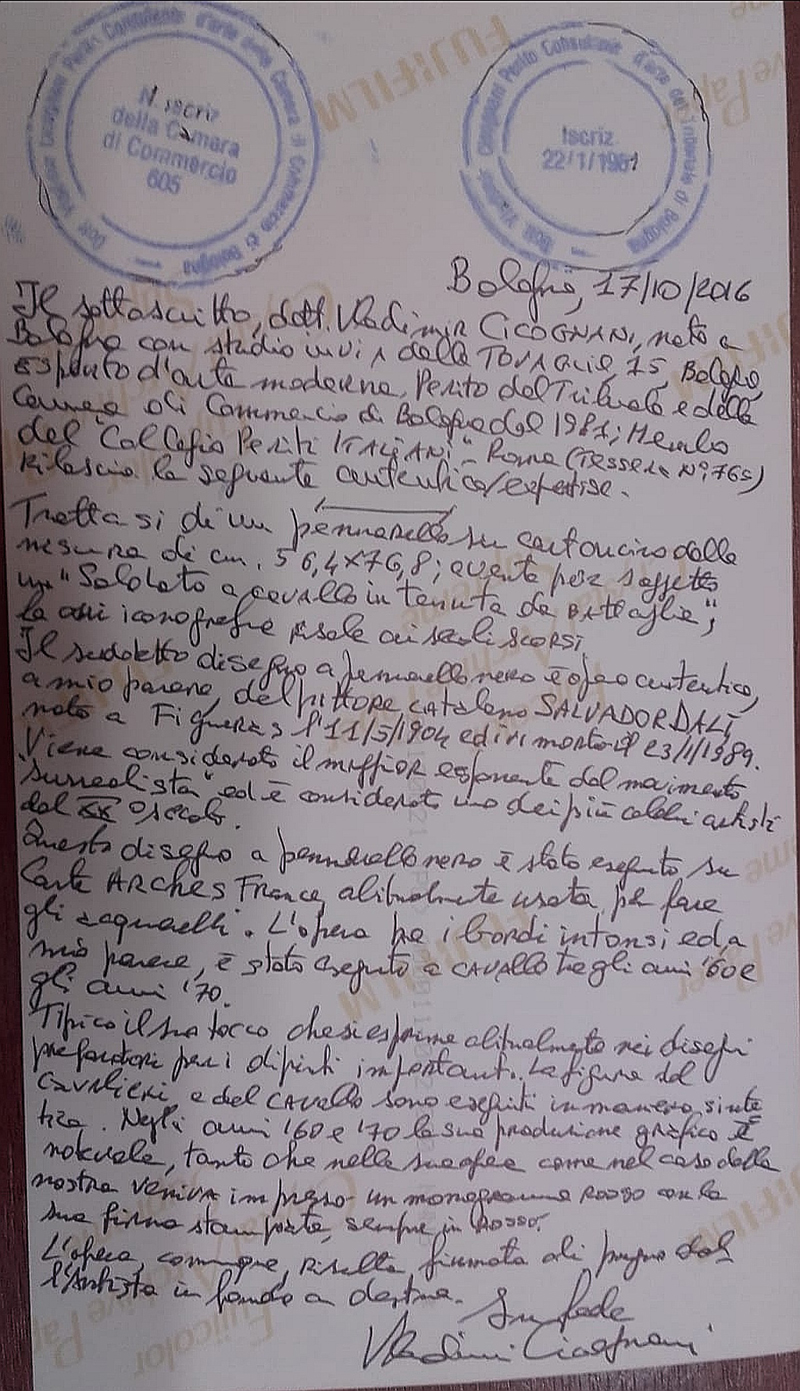 Dott. Vladimir Cicognani Perito Consulente d'arte della Camera di Commercio di Bologna
N. iscriz
della Camara
di Commercio
605
Dott. Vladimir Cicognani Perito Consulente d'arte del Tribunale di Bologna
Iscriz
22/1/1981
Bologna, 17/10/2016
Il sottoscritto, dott. Vladimir CICOGNANI, nato a
Bologna con studio in via delle TOVAGLIE, 15, Bologna,
Esperto d'arte moderna, Perito del Tribunale e della
Camera di Commercio di Bologna dal 1981; Membro
del "Collegio Periti ITALIANI" - Roma (Tessera N° 765)
Rilascia la seguente autentica/expertise.
Trattasi di un pennarello su cartoncino della
misura di cm. 56,4x76,8; avente per soggetto
un "Soldato a cavallo in tenuta da Battaglia",
la cui iconografia risale ai secoli scorsi.
Il suddetto disegno a pennarello nero è opera autentica,
a mio parere, del pittore catalano SALVADOR DALÌ,
nato a Figueras l'11/5/1904 ed ivi morto il 23/1/1989.
Viene considerato il maggior esponente del movimento
"surrealista" ed è considerato uno dei più celebri artisti
del XX° secolo.
Questo disegno a pennarello nero è stato eseguito su
Carta ARCHES France, abitualmente usata per fare
gli acquarelli. L'opera ha i bordi intonsi ed, a
mio parere, è stata eseguita a CAVALLO tra gli anni '60 e
gli anni '70.
Tipico il suo tocco che si esprime abitualmente nei disegni
preparatori per i dipinti importanti. La figura del
CAVALIERE, e del CAVALLO sono eseguiti in maniera sinte
tica. Negli anni '60 e '70 la sua produzione grafica è
notevole, tanto che nelle sue opere come nel caso della
nostra VENIVA impresso un monogramma ROSSO con la
sua firma stampata, sempre in ROSSO.
L'opera, comunque, risulta firmata di pugno dal
l'Artista in fondo a destra.
In fede
Vladimir Cicognani
FUJIFILM
Fujicolor